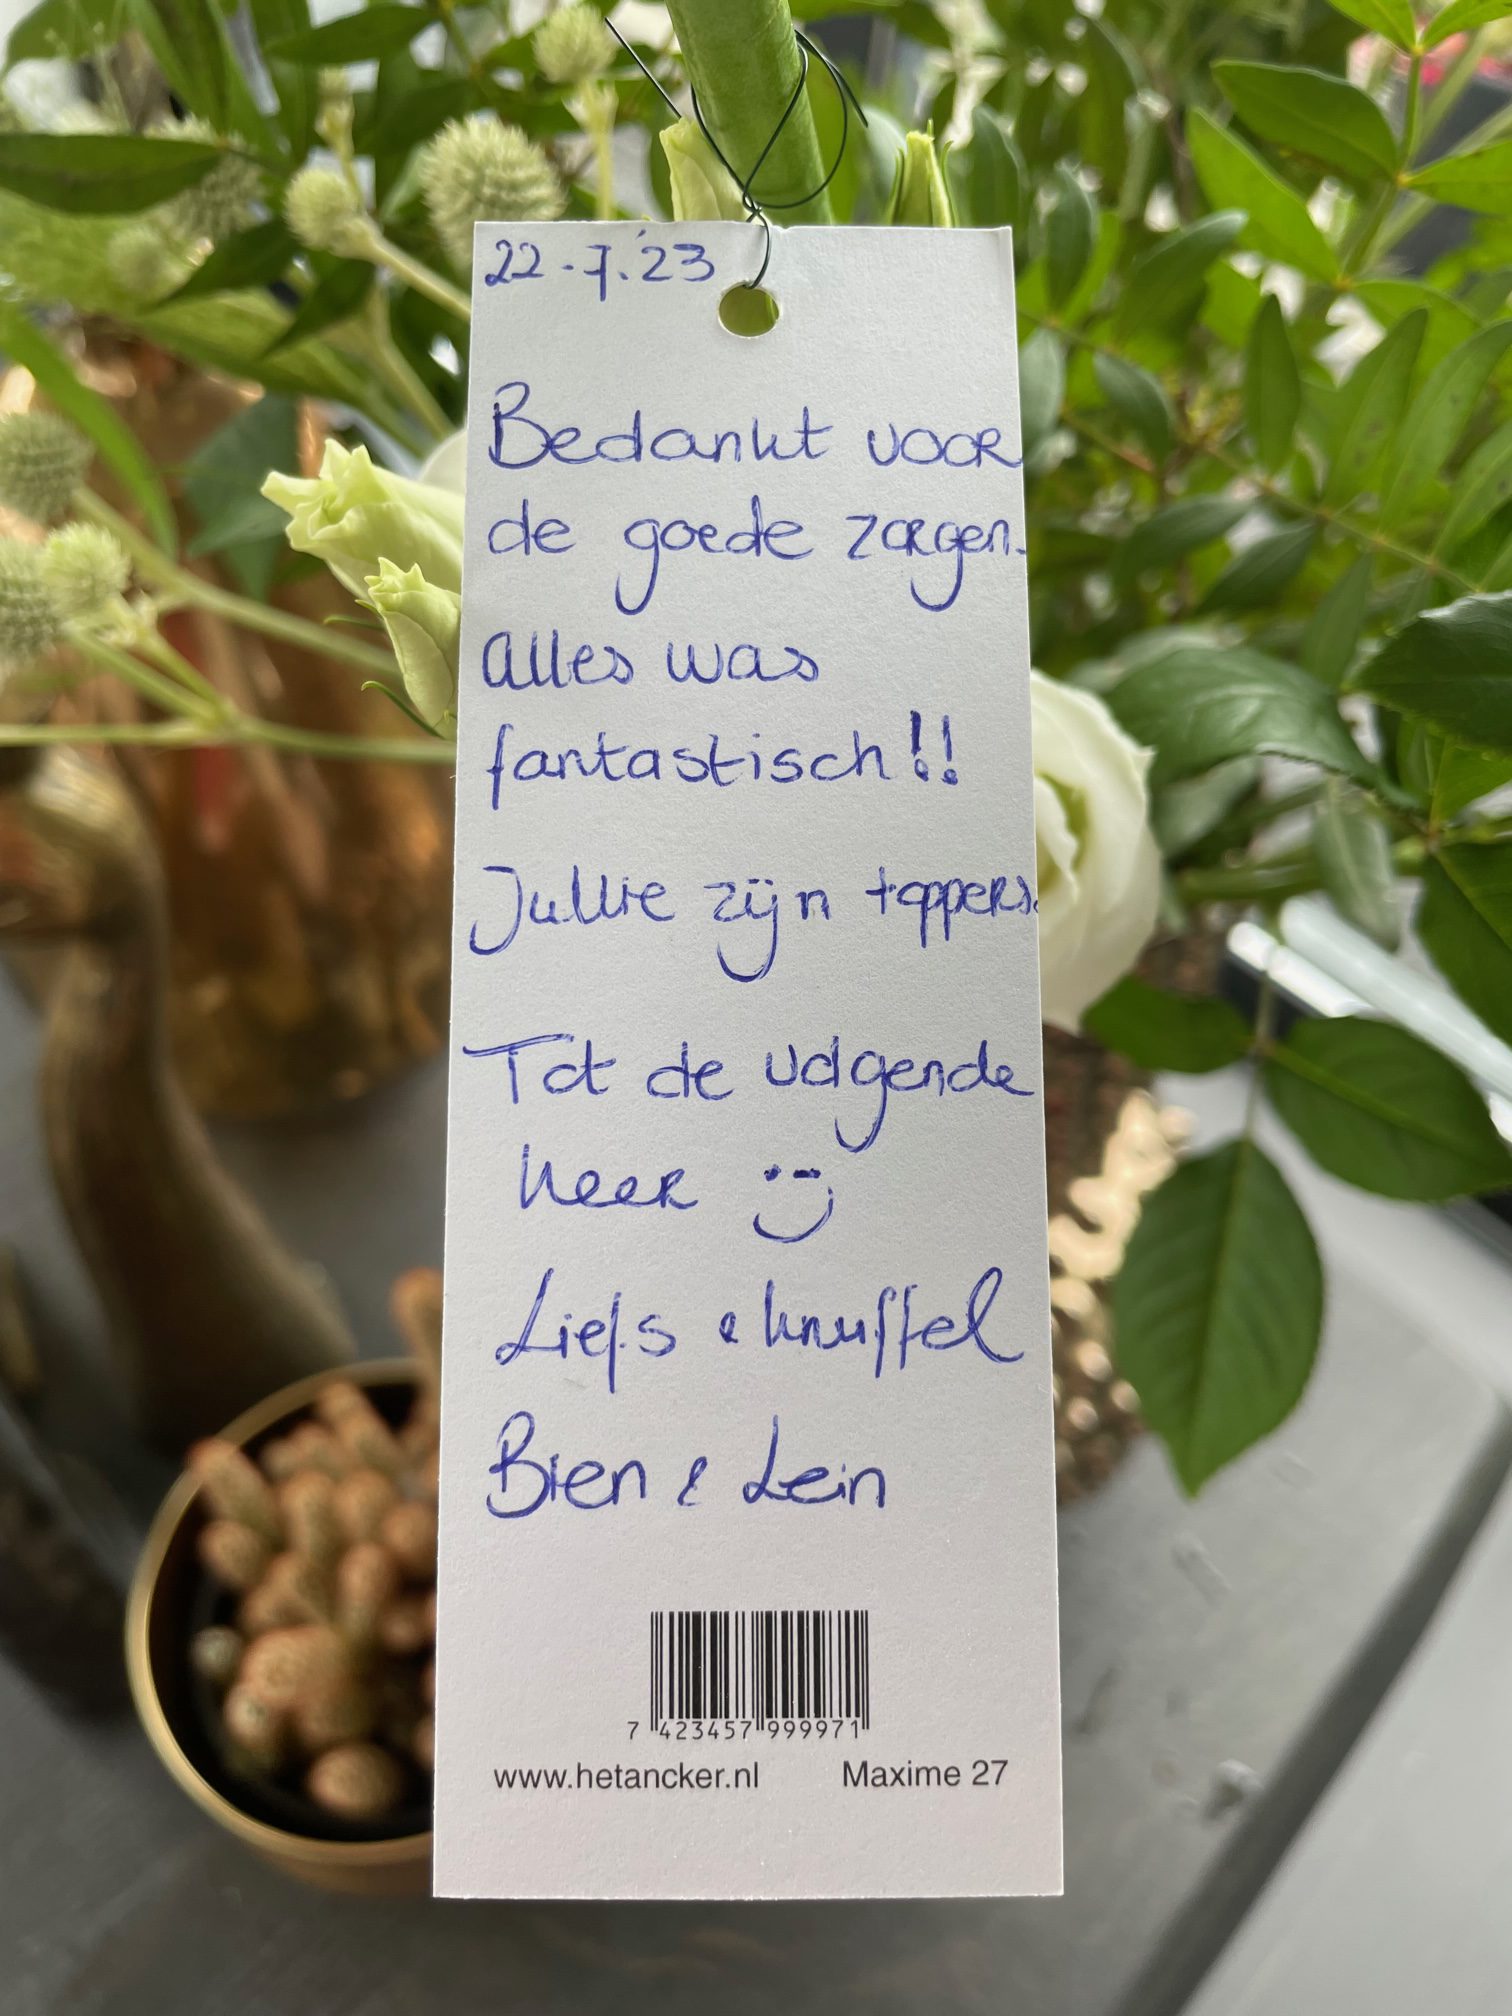 22.7.'23
Bedankt voor
de goede zorgen.
Alles was
fantastisch!!
Jullie zijn toppers.
Tot de volgende
keer
Liefs & knuffel
Bien & Lein
7 423457 999971
www.hetancker.nl Maxime 27